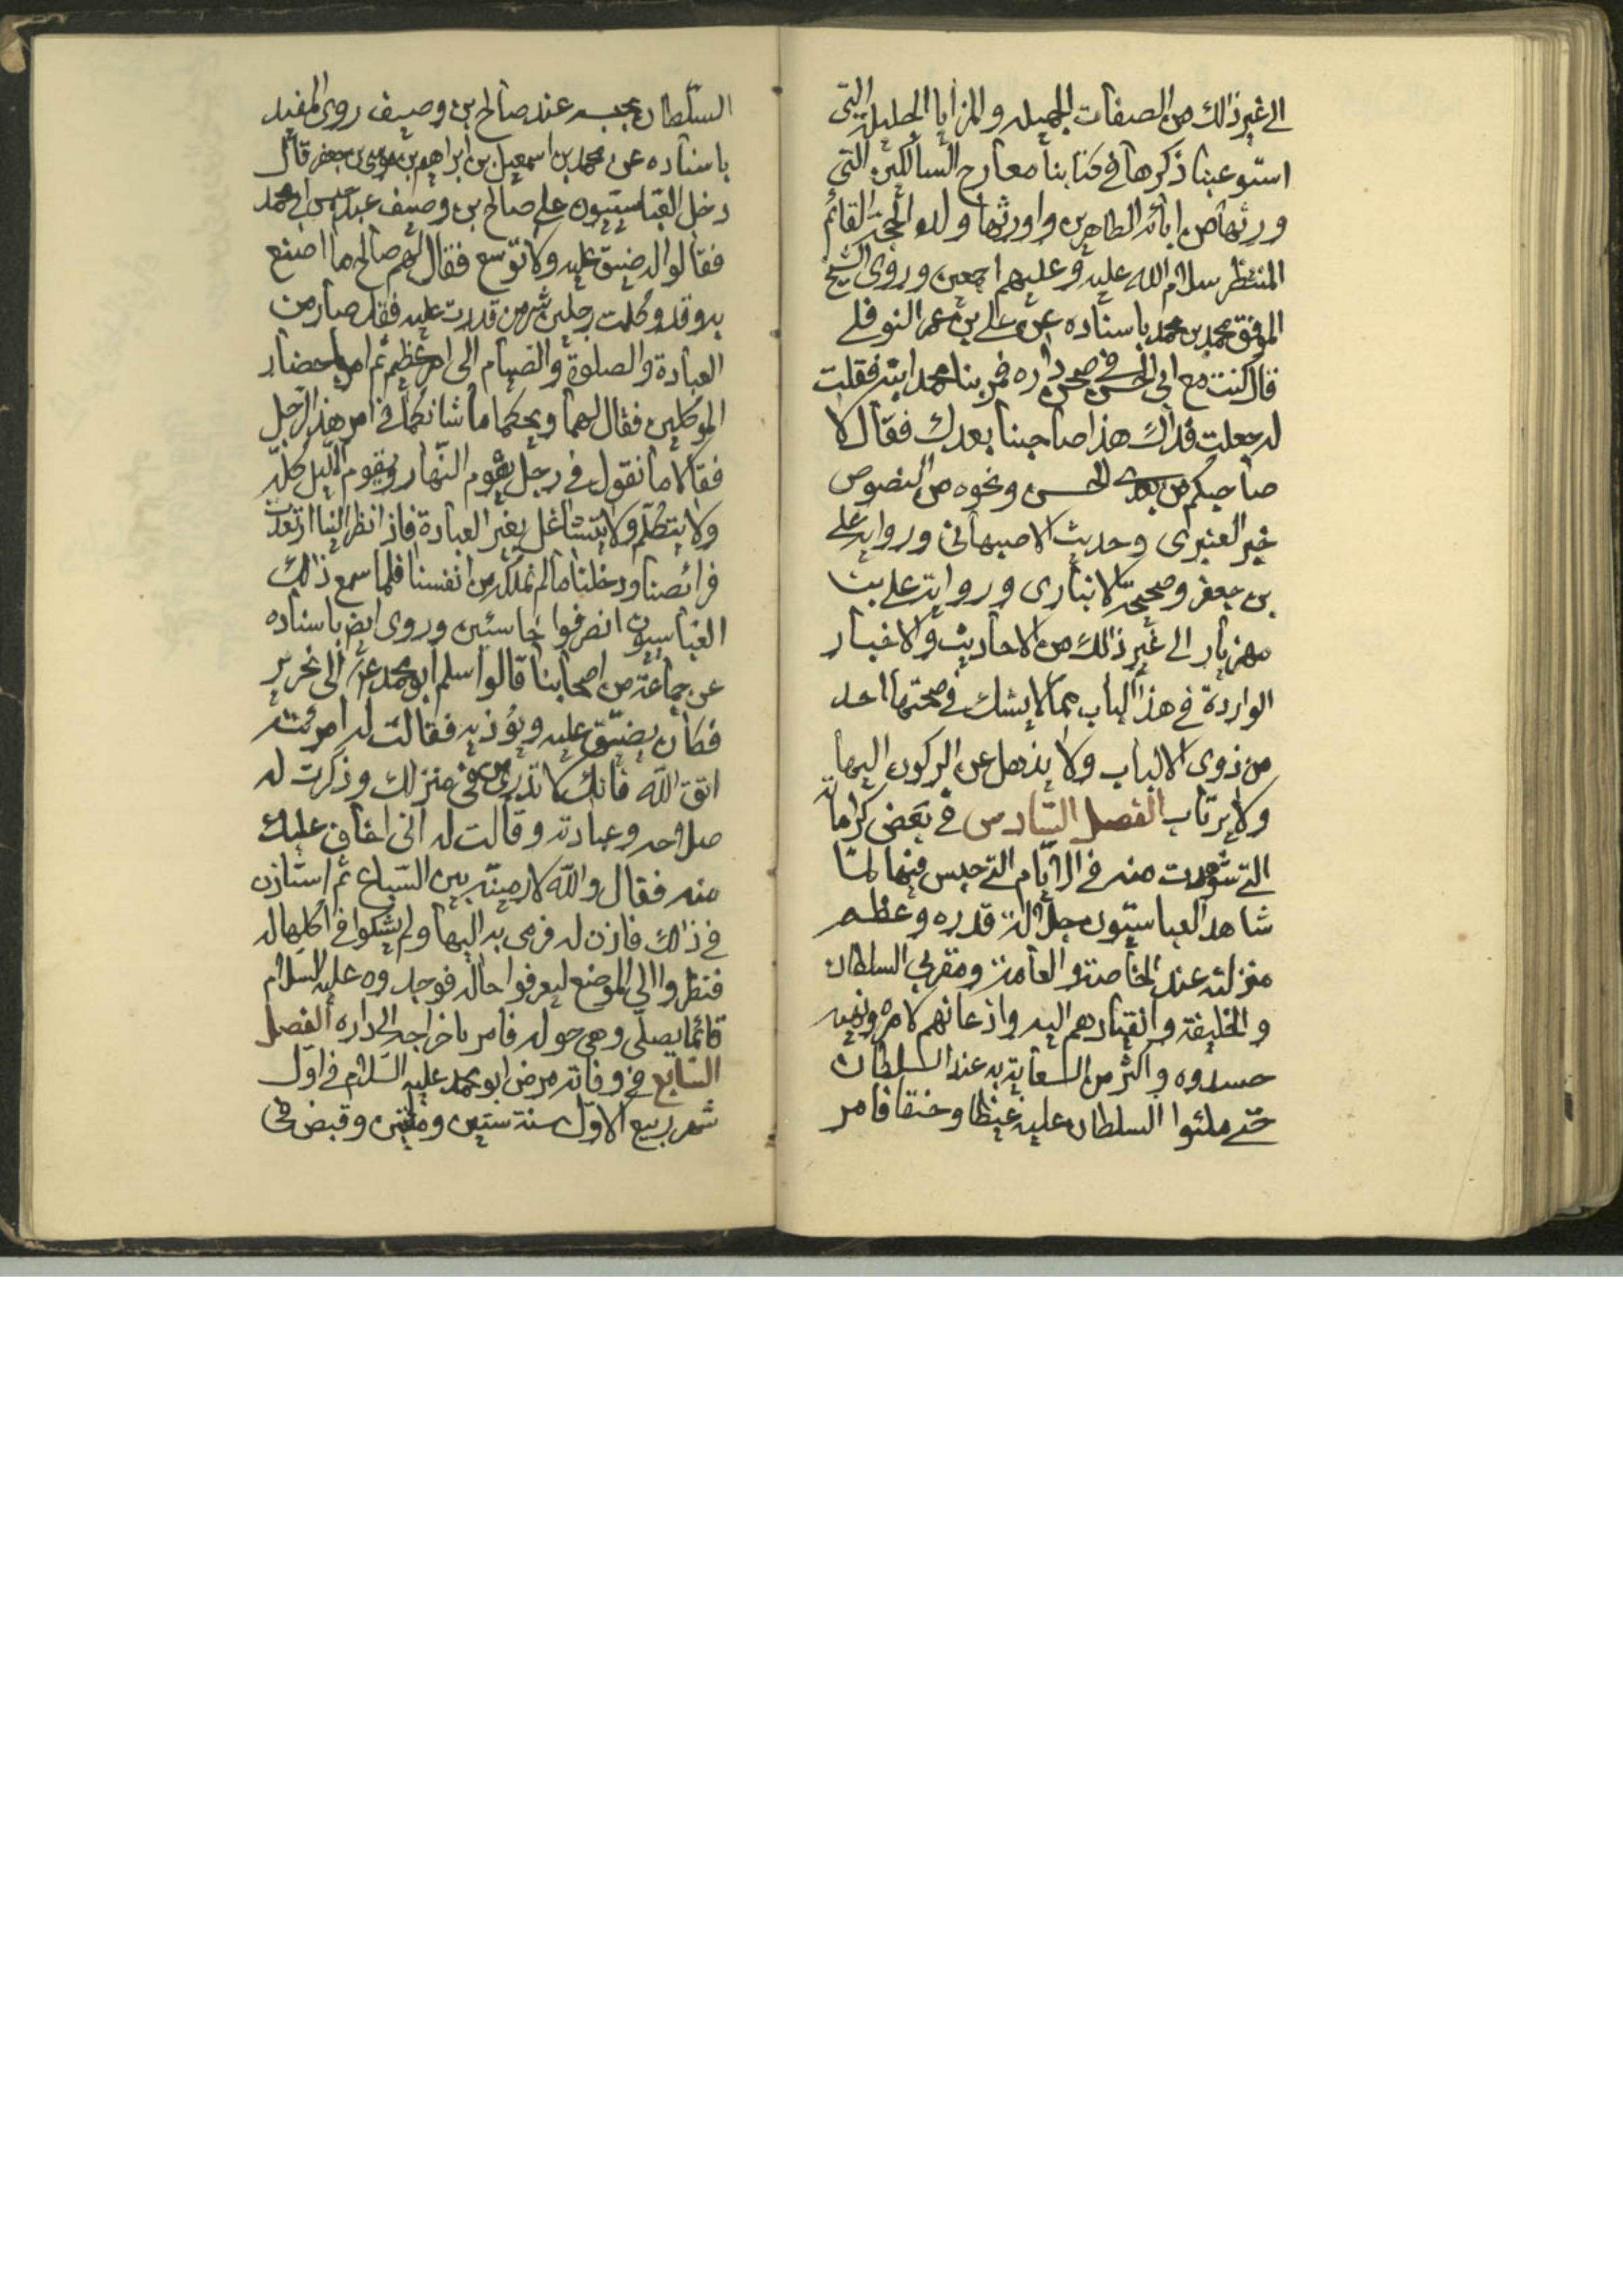 الى غير ذالك من الصفات الجميلة والمزايا الجليلة التي
استوعبنا ذكرها في كتابنا معارج السالكين التي
ورثها من ابائه الطاهرين واورثها ولده الحجة القائم
المنتظر سلام الله عليه وعليهم اجمعين وروى الشيخ
الموفق محمد بن محمد باسناده عن علي بن عمر النوفلي
قال كنت مع ابي الحسن في صحن داره فمر بنا محمد ابنه فقلت
له جعلت فداك هذا صاحبنا بعدك فقال لا
صاحبكم من بعدي الحسن ونحوه من النصوص
خبر العنبري وحديث الاصبهاني ورواية علي
بن جعفر وصحيحة الانباري ورواية علي بن
مهزيار الى غير ذالك من الاحاديث والاخبار
الواردة في هذا الباب مما لا يشك في صحتها احد
من ذوى الالباب ولا يذهل عن الركون اليها
ولا يرتاب الفصل السادس في بعض كراماته
التي شوهدت منه في الايام التي حبس فيها لما
شاهد العباسيون جلالة قدره وعظم
منزلته عند الخاصة والعامة ومقربي السلطان
والخليفة وانقيادهم اليه واذعانهم لامره ونهيه
حسدوه واكثر من السعاية به عند السلطان
حتى ملئوا السلطان عليه غيظا وحنقا فامر
السلطان بحبسه عند صالح بن وصيف روى المفيد
باسناده عن محمد بن اسمعيل بن ابراهيم بن موسى بن جعفر قال
دخل العباسيون على صالح بن وصيف عند حبس ابي محمد
فقالوا له ضيق عليه ولا توسع فقال لهم صالح ما اصنع
به وقد وكلت رجلين شر من قدرت عليه فقد صار من
العبادة والصلوة والصيام الى امر عظيم ثم امر باحضار
الموكلين فقال لهما ويحكما ما شانكما في امر هذا الرجل
فقالا ما نقول في رجل يقوم النهار ويقوم الليل كله
ولا يتكلم ولا يتشاغل بغير العبادة فاذا نظر الينا ارتعدت
فرائصنا ودخلنا ما لم نملكه من انفسنا فلما سمع ذالك
العباسيون انصرفوا خاسئين وروى ايض باسناده
عن جماعة من اصحابنا قالوا سلم ابو محمد الى نحرير
فكان يضيق عليه ويؤذيه فقالت له امرئته
اتق الله فانك لا تدرى من في منزلك وذكرت له
صلاحه وعبادته وقالت له انى اخاف عليك
منه فقال والله لارمينه بين السباع ثم استاذن
في ذالك فاذن له فرمى به اليها ولم يشكوا في اكلها له
فنظروا الى الموضع ليعرفوا حاله فوجدوه عليه السلام
قائما يصلى وهي حوله فامر باخراجه الى داره الفصل
السابع في وفاته مرض ابو محمد عليه السلام في اول
شهر ربيع الاول سنة ستين ومئتين وقبض في